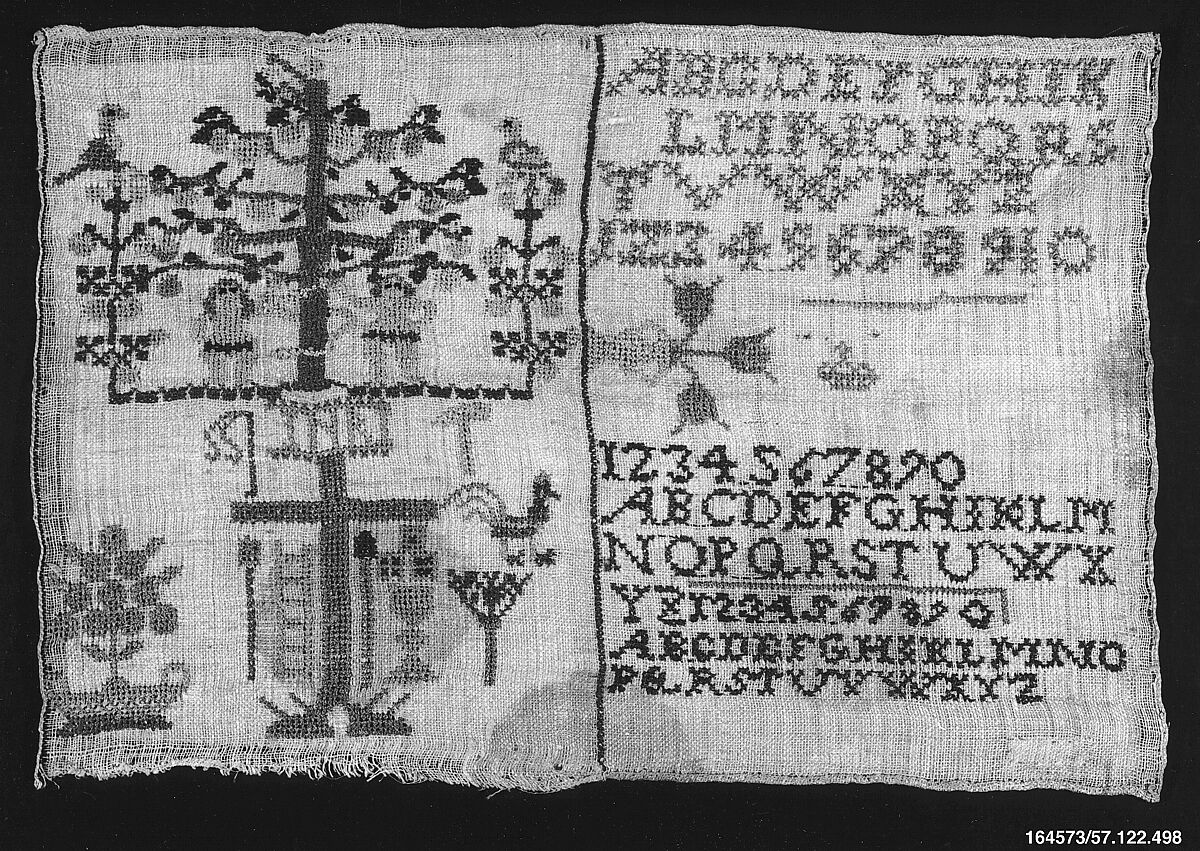 ABCDEFGHIK
LMNOPQRS
TVWXYZ
12345678910
1234567890
ABCDEFGHIKLM
NOPQRSTUWX
YZ1234567890
ABCDEFGHIKLMNO
PQRSTUVWXYZ
164573/57.122.498